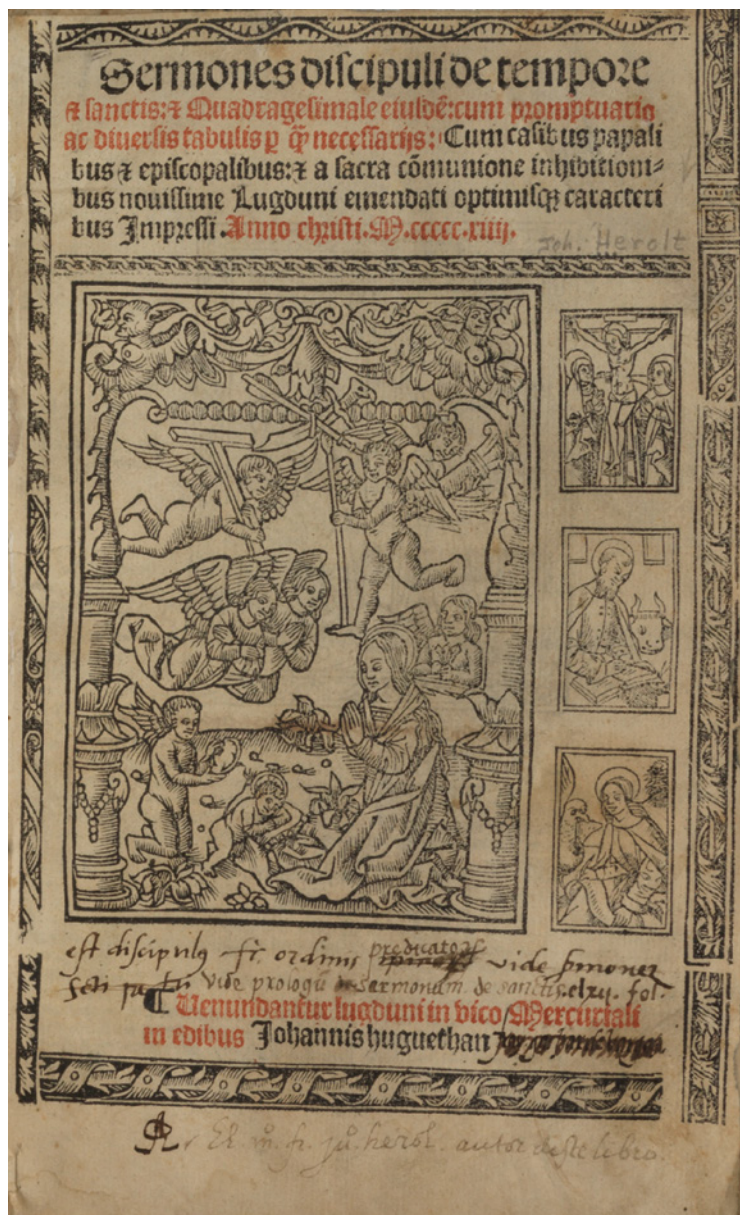 Sermones discipuli de tempore
⁊ sanctis:⁊ Quadragesimale eiusdē:cum promptuario
ac diuersis tabulis ꝑ q̄ȝ necessarijs: Cum casibus papali
bus ⁊ episcopalibus:⁊ a sacra cōmunione inhibitioni⸗
bus nouissime Lugduni emendati optimisqȝ caracteri
bus Impressi. Anno christi.M.ccccc.xiiij.
Joh. Herolt
est discipulꝰ fr. ordinis predicatorꝝ vide sermones
vide prologū sermonum de sanctis. clxij. fol.
¶ Uenundantur lugduni in vico Mercuriali
in edibus Johannis huguethan
autor deste libro.